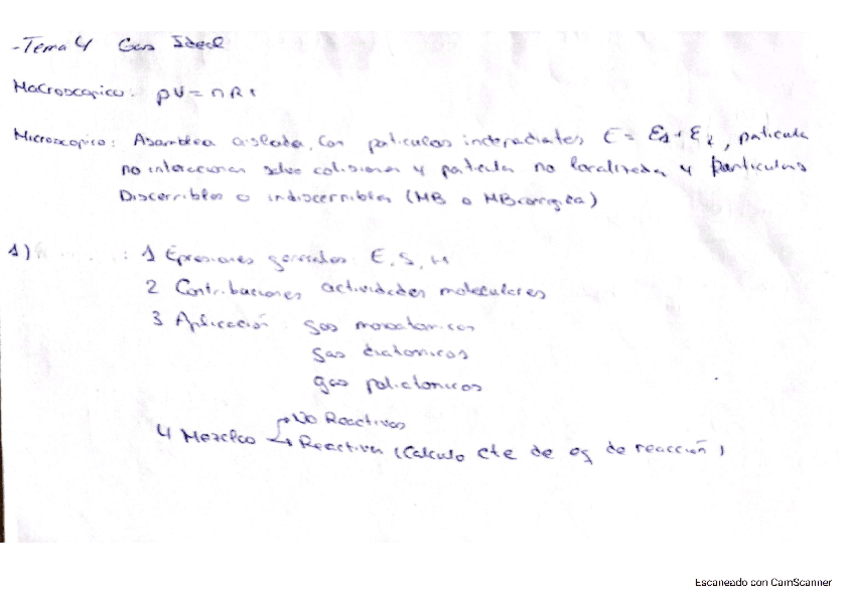 -Tema 4 Gas Ideal
Macroscopico: pV = nRT
Microscopico: Asamblea aislada, con particulas E = E1 + E2, particula
no interaccionan salvo colisiones y particula no localizada y particulas
Discernibles o indiscernibles (MB o MBcorregida)
1) : 1 Expresiones generales E, S, H
2 Contribuciones actividades moleculares
3 Aplicación: gas monoatomicos
gas diatomicos
gas poliatonicos
4 Mezclas → No Reactivas
→ Reactiva (Calculo cte de eq de reacción)
Escaneado con CamScanner